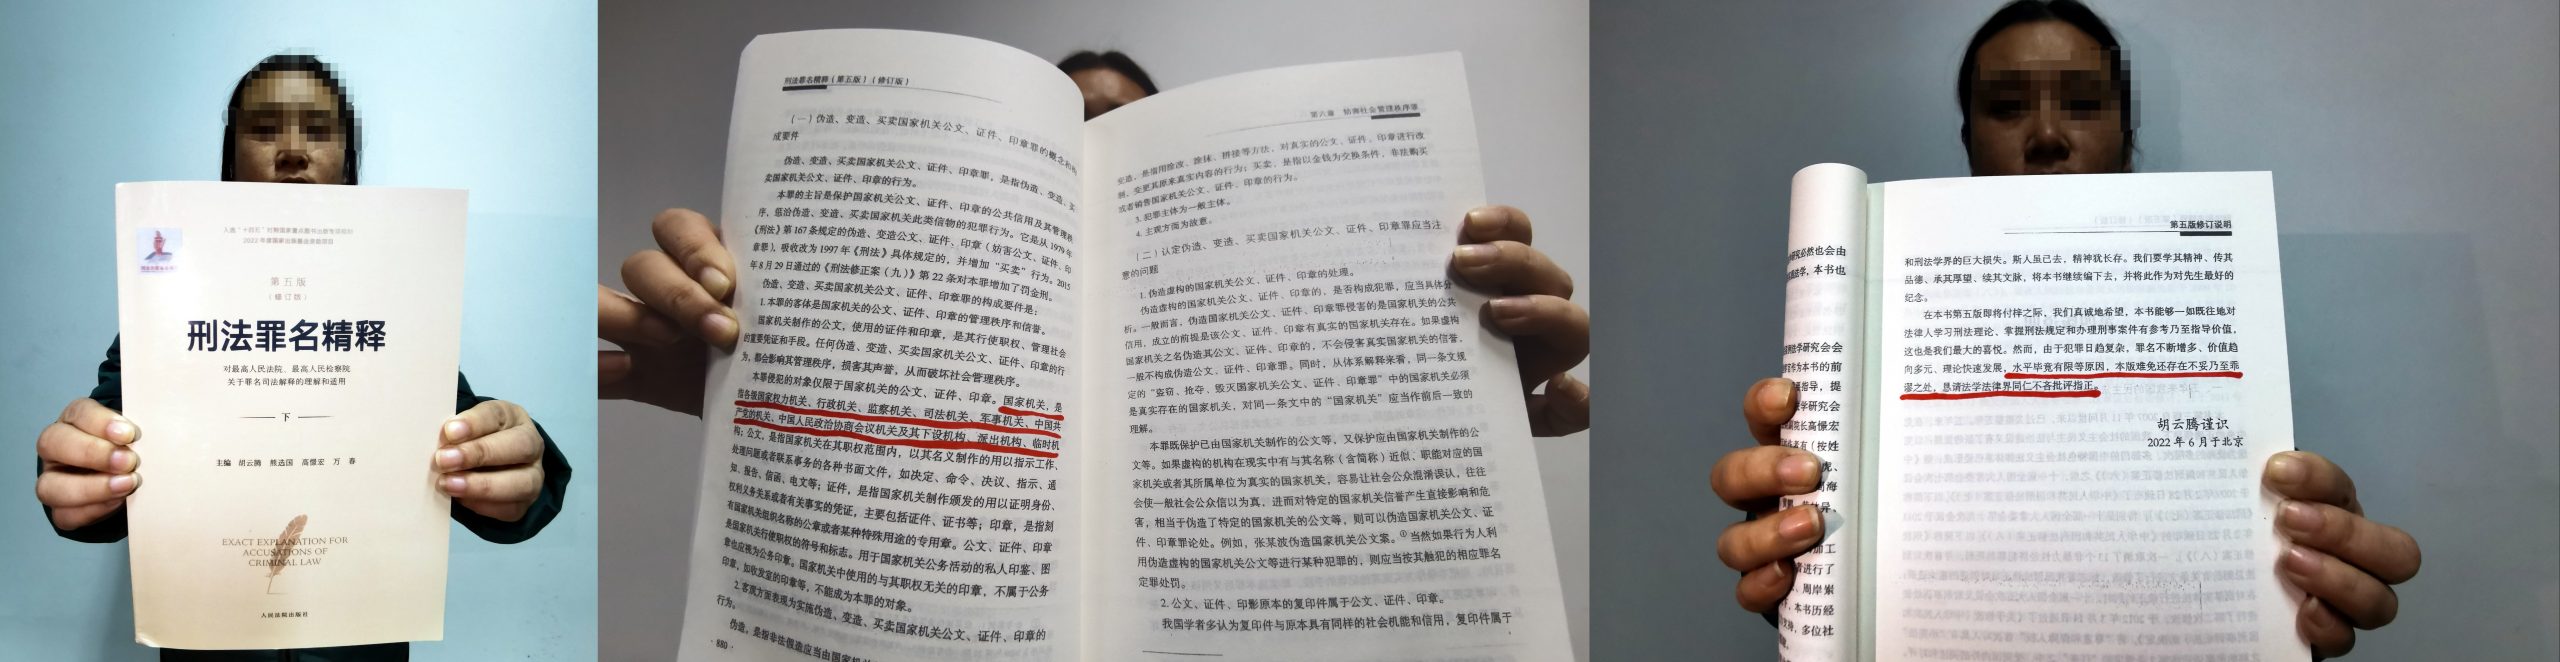 入选“十四五”时期国家重点图书出版专项规划
2022年度国家出版基金资助项目
第五版
（修订版）
刑法罪名精释
对最高人民法院、最高人民检察院
关于罪名司法解释的理解和适用
下
主编 胡云腾 熊选国 高憬宏 万春
EXACT EXPLANATION FOR
ACCUSATIONS OF
CRIMINAL LAW
人民法院出版社
刑法罪名精释（第五版）（修订版）
（一）伪造、变造、买卖国家机关公文、证件、印章罪的概念和构
成要件
伪造、变造、买卖国家机关公文、证件、印章罪，是指伪造、变造、买
卖国家机关公文、证件、印章的行为。
本罪的主旨是保护国家机关公文、证件、印章的公共信用及其管理秩
序，惩治伪造、变造、买卖国家机关此类信物的犯罪行为。它是从1979年
《刑法》第167条规定的伪造、变造公文、证件、印章（妨害公文、证件、印
章罪），吸收改为1997年《刑法》具体规定的，并增加“买卖”行为。2015
年8月29日通过的《刑法修正案（九）》第22条对本罪增加了罚金刑。
伪造、变造、买卖国家机关公文、证件、印章罪的构成要件是：
1.本罪的客体是国家机关的公文、证件、印章的管理秩序和信誉。
国家机关制作的公文，使用的证件和印章，是其行使职权、管理社会
的重要凭证和手段。任何伪造、变造、买卖国家机关公文、证件、印章的行
为，都会影响其管理秩序，损害其声誉，从而破坏社会管理秩序。
本罪侵犯的对象仅限于国家机关的公文、证件、印章。国家机关，是
指各级国家权力机关、行政机关、监察机关、司法机关、军事机关、中国共
产党的机关、中国人民政治协商会议机关及其下设机构、派出机构、临时机
构；公文，是指国家机关在其职权范围内，以其名义制作的用以指示工作、
处理问题或者联系事务的各种书面文件，如决定、命令、决议、指示、通
知、报告、信函、电文等；证件，是指国家机关制作颁发的用以证明身份、
权利义务关系或者有关事实的凭证，主要包括证件、证书等；印章，是指刻
有国家机关组织名称的公章或者某种特殊用途的专用章。公文、证件、印章
是国家机关行使职权的符号和标志。用于国家机关公务活动的私人印鉴、图
章也应视为公务印章。国家机关中使用的与其职权无关的印章，不属于公务
印章，如收发室的印章等，不能成为本罪的对象。
2.客观方面表现为实施伪造、变造、买卖国家机关公文、证件、印章的
行为。
伪造，是指非法假造应当由国家机关
880
第六章 妨害社会管理秩序罪
变造，是指用除改、涂抹、拼接等方法，对真实的公文、证件、印章进行改
制、变更其原来真实内容的行为；买卖，是指以金钱为交换条件，非法购买
或者销售国家机关公文、证件、印章的行为。
3.犯罪主体为一般主体。
4.主观方面为故意。
（二）认定伪造、变造、买卖国家机关公文、证件、印章罪应当注
意的问题
1.伪造虚构的国家机关公文、证件、印章的处理。
伪造虚构的国家机关公文、证件、印章的，是否构成犯罪，应当具体分
析。一般而言，伪造国家机关公文、证件、印章罪侵害的是国家机关的公共
信用，成立的前提是该公文、证件、印章有真实的国家机关存在。如果虚构
国家机关之名伪造其公文、证件、印章的，不会侵害真实国家机关的信誉，
一般不构成伪造公文、证件、印章罪。同时，从体系解释来看，同一条文规
定的“盗窃、抢夺、毁灭国家机关公文、证件、印章罪”中的国家机关必须
是真实存在的国家机关，对同一条文中的“国家机关”应当作前后一致的
理解。
本罪既保护已由国家机关制作的公文等，又保护应由国家机关制作的公
文等。如果虚构的机构在现实中有与其名称（含简称）近似、职能对应的国
家机关或者其所属单位为真实的国家机关，容易让社会公众混淆误认，往往
会使一般社会公众信以为真，进而对特定的国家机关信誉产生直接影响和危
害，相当于伪造了特定的国家机关的公文等，则可以伪造国家机关公文、证
件、印章罪论处。例如，张某波伪造国家机关公文案。①当然如果行为人利
用伪造虚构的国家机关公文等进行某种犯罪的，则应当按其触犯的相应罪名
定罪处罚。
2.公文、证件、印影原本的复印件属于公文、证件、印章。
我国学者多认为复印件与原本具有同样的社会机能和信用，复印件属于
研究必然也会由
法学，本书也
刑法学研究会会
作为本书的前
指导，提
学研究会
院长高憬宏
有（按姓
虎、
海
加工
者进行了
、周岸崇
，本书历经
支持，多位社
第五版修订说明
和刑法学界的巨大损失。斯人虽已去，精神犹长存。我们要学其精神、传其
品德、承其厚望、续其文脉，将本书继续编下去，并将此作为对先生最好的
纪念。
在本书第五版即将付梓之际，我们真诚地希望，本书能够一如既往地对
法律人学习刑法理论、掌握刑法规定和办理刑事案件有参考乃至指导价值，
这也是我们最大的喜悦。然而，由于犯罪日趋复杂，罪名不断增多、价值趋
向多元、理论快速发展，水平毕竟有限等原因，本版难免还存在不妥乃至乖
谬之处，恳请法学法律界同仁不吝批评指正。
胡云腾谨识
2022年6月于北京